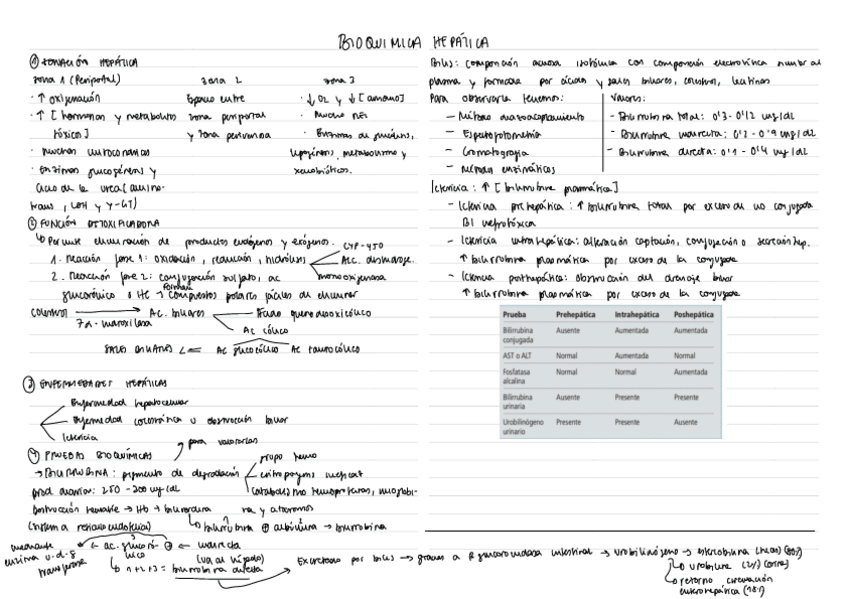 BIOQUIMICA HEPÁTICA
① ZONACIÓN HEPÁTICA
Zona 1 (Periportal) zona 2 zona 3
· ↑ oxigenación Espacio entre · ↓ O2 y ↓ [amano]
· ↑ [hormonas y metabolitos zona periportal · Mucho REL
tóxicos] y zona perivenosa · Enzimas de glucólisis,
· Muchas mitocondrias lipogénesis, metabolismo y
· Enzimas glucogénesis y xenobióticos.
ciclo de la urea (amino-
trans, LDH y γ-GT)
② FUNCIÓN DETOXIFICADORA
↳ Permite eliminación de productos endógenos y exógenos.
1. Reacción fase 1: oxidación, reducción, hidrólisis
CYP-450
monooxigenasa
2. Reacción fase 2: conjugación sulfato, ac
glucurónico o HC → forman compuestos polares fáciles de eliminar
colesterol → Ac. biliares
7α-hidroxilasa
Ácido quenodesoxicólico
Ac cólico
SALES BILIARES <= Ac glicocólico Ac taurocólico
③ ENFERMEDADES HEPÁTICAS
Enfermedad hepatocelular
Enfermedad colestática u obstrucción biliar
Ictericia
④ PRUEBAS BIOQUÍMICAS
para valorarlas
→ BILIRRUBINA: pigmento de degradación
grupo hemo
catabolismo hemoproteínas, mioglobi-
na y citocromos
prod. diaria: 250 - 300 mg/dL
Destrucción hematíe → Hb → biliverdina
(sistema reticuloendotelial)
↳ bilirrubina ⊕ albúmina → bilirrubina
indirecta
(va al hígado)
← ac. glucurónico ⊕ ←
mediante
enzima u.d.g
transferasa
↳ 1+2+3 = bilirrubina directa
Excretada por bilis → gracias a β glucuronidasa intestinal → urobilinógeno → estercobilina (heces) (80%)
↳ urobilina (2%) (orina)
↳ retorno circulación
enterohepática (18%)
Bilis: composición acuosa isotónica con composición electrolítica similar al
plasma y formada por ácidos y sales biliares, colesterol, lecitinas
Para observarla tenemos:
- Método diazoacoplamiento
- Espectofotometría
- Cromatografía
- Métodos enzimáticos
Valores:
- Bilirrubina total: 0'3-0'12 mg/dL
- Bilirrubina indirecta: 0'2-0'9 mg/dL
- Bilirrubina directa: 0'1-0'4 mg/dL
Ictericia: ↑ [bilirrubina plasmática]
- Ictericia prehepática: ↑ bilirrubina total por exceso de no conjugada
BI nefrotóxica
- Ictericia intrahepática: alteración captación, conjugación o secreción hep.
↑ bilirrubina plasmática por exceso de la conjugada
- Ictericia posthepática: obstrucción del drenaje biliar
↑ bilirrubina plasmática por exceso de la conjugada
Prueba Prehepática Intrahepática Poshepática
Bilirrubina conjugada Ausente Aumentada Aumentada
AST o ALT Normal Aumentada Normal
Fosfatasa alcalina Normal Normal Aumentada
Bilirrubina urinaria Ausente Presente Presente
Urobilinógeno urinario Presente Presente Ausente